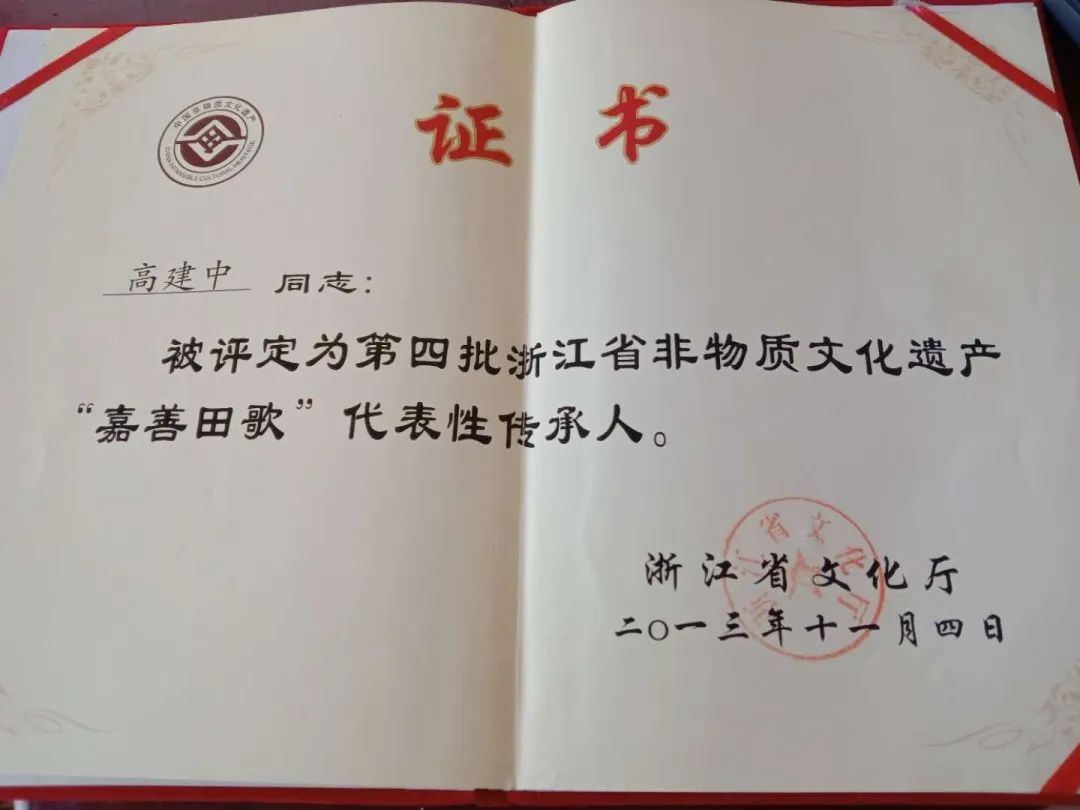 证书
中国非物质文化遗产
CHINA INTANGIBLE CULTURAL HERITAGE
高建中 同志：
被评定为第四批浙江省非物质文化遗产
“嘉善田歌”代表性传承人。
浙江省文化厅
浙江省文化厅
二〇一三年十一月四日